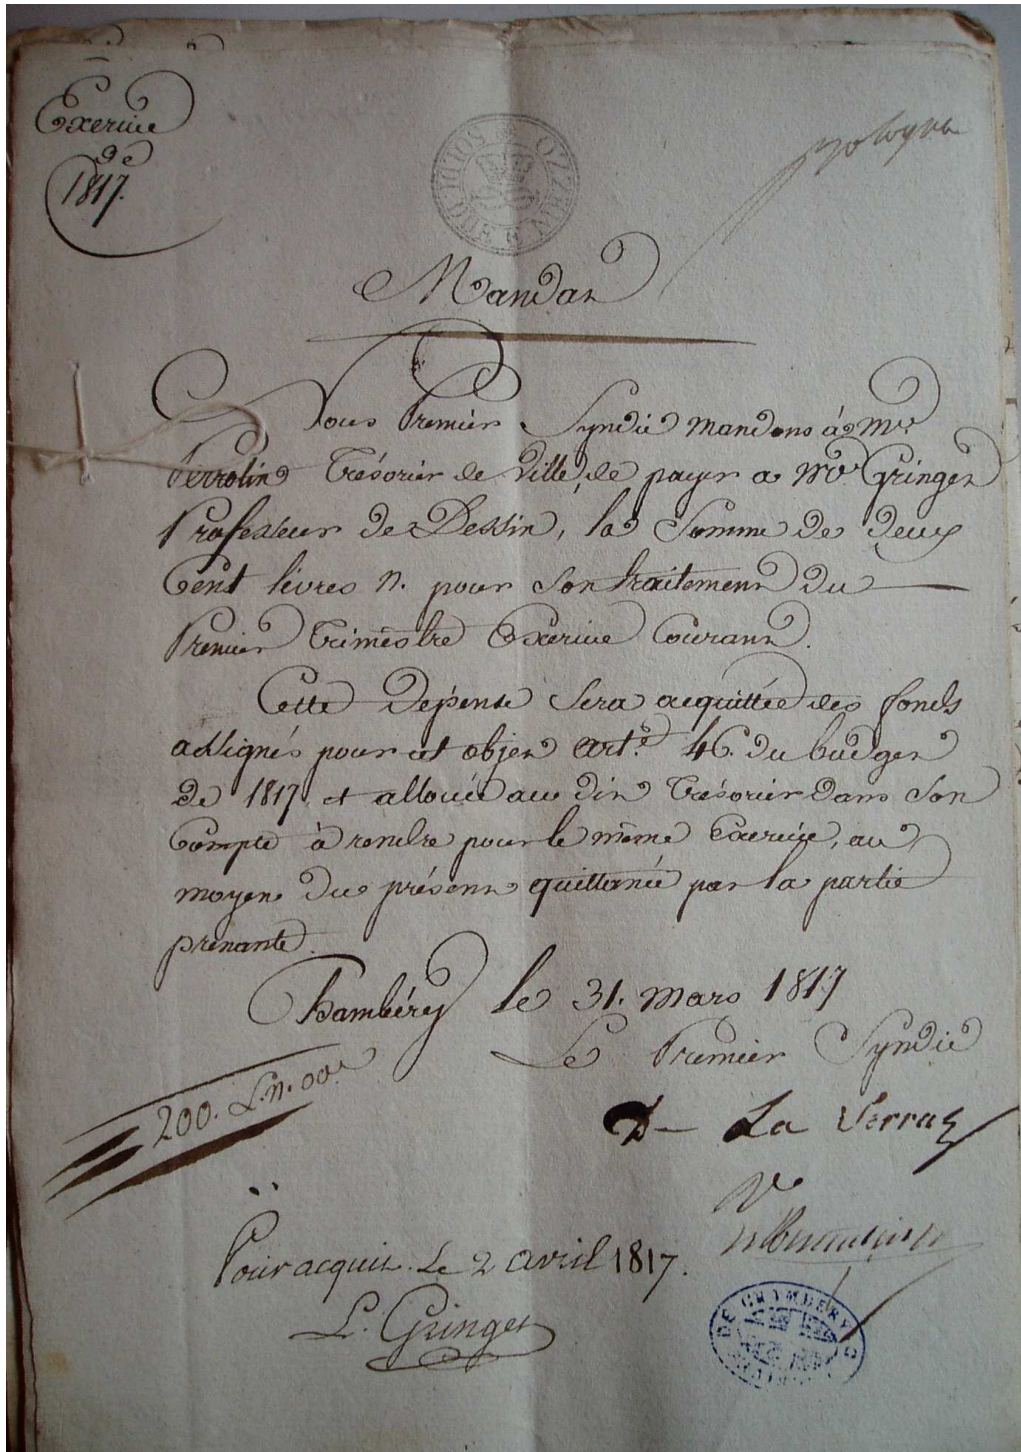 Exercice
de
1817.
SOLDI DUE E MEZZO
Mandat
Nous Premier Syndic mandons à Mr
Perrotin Trésorier de Ville, de payer a Mr Gringet
Professeur de Dessin, la Somme de deux
Cent livres n. pour Son traitement du
Premier Trimèstre Exercice Courant.
Cette Dépense Sera acquittée des fonds
assignés pour cet objet art.e 46. du budget
de 1817, et allouée au dit Trésorier dans Son
Compte à rendre pour le même Exercice, au
moyen du présent quittancé par la partie
prenante.
Chambéry le 31. Mars 1817
Le Premier Syndic
200. L. n. 00c
D La Serraz
Pour acquit. Le 2 avril 1817.
L. Gringet
DE CHAMBERY